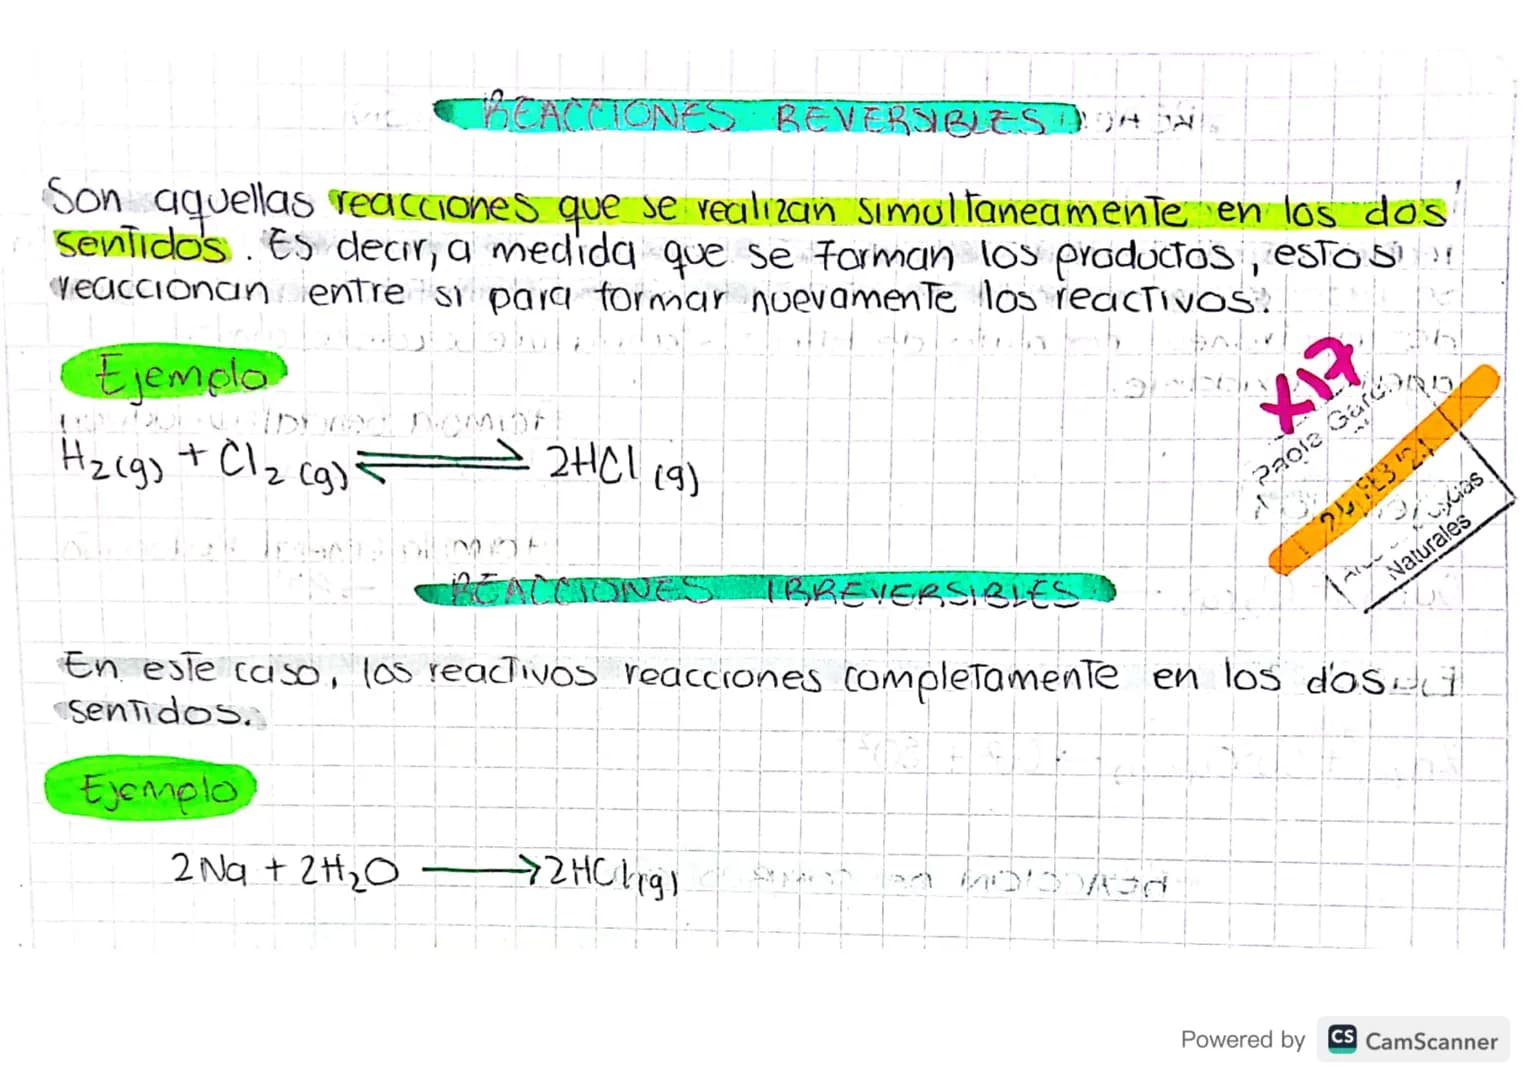 REACCIONES REVERSIBLES
Son aquellas reacciones que se realizan simultaneamente en los dos
sentidos. Es decir, a medida que se forman los productos, estos
reaccionan entre si para formar nuevamente los reactivos.
Ejemplo
H₂(g) + Cl₂(g) ⇌ 2HCl(g)
X17
Paola
24 FEB '21
Naturales
REACCIONES IRREVERSIBLES
En este caso, los reactivos reacciones completamente en los dos
sentidos.
Ejemplo
2Na + 2H₂O ⟶ 2HCl(g)
Powered by CS CamScanner